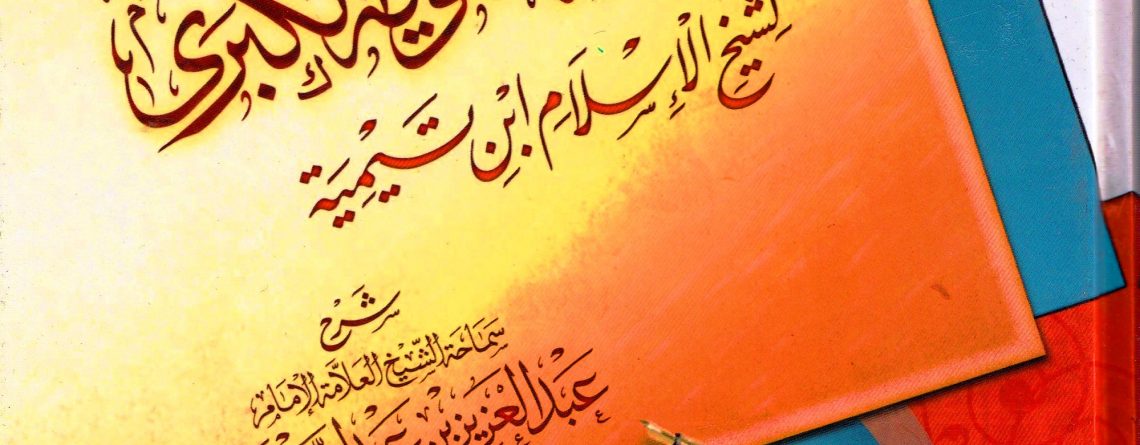 الكبرى
لشيخ الإسلام ابن تيمية
شرح
سماحة الشيخ العلامة الإمام
عبد العزيز بن